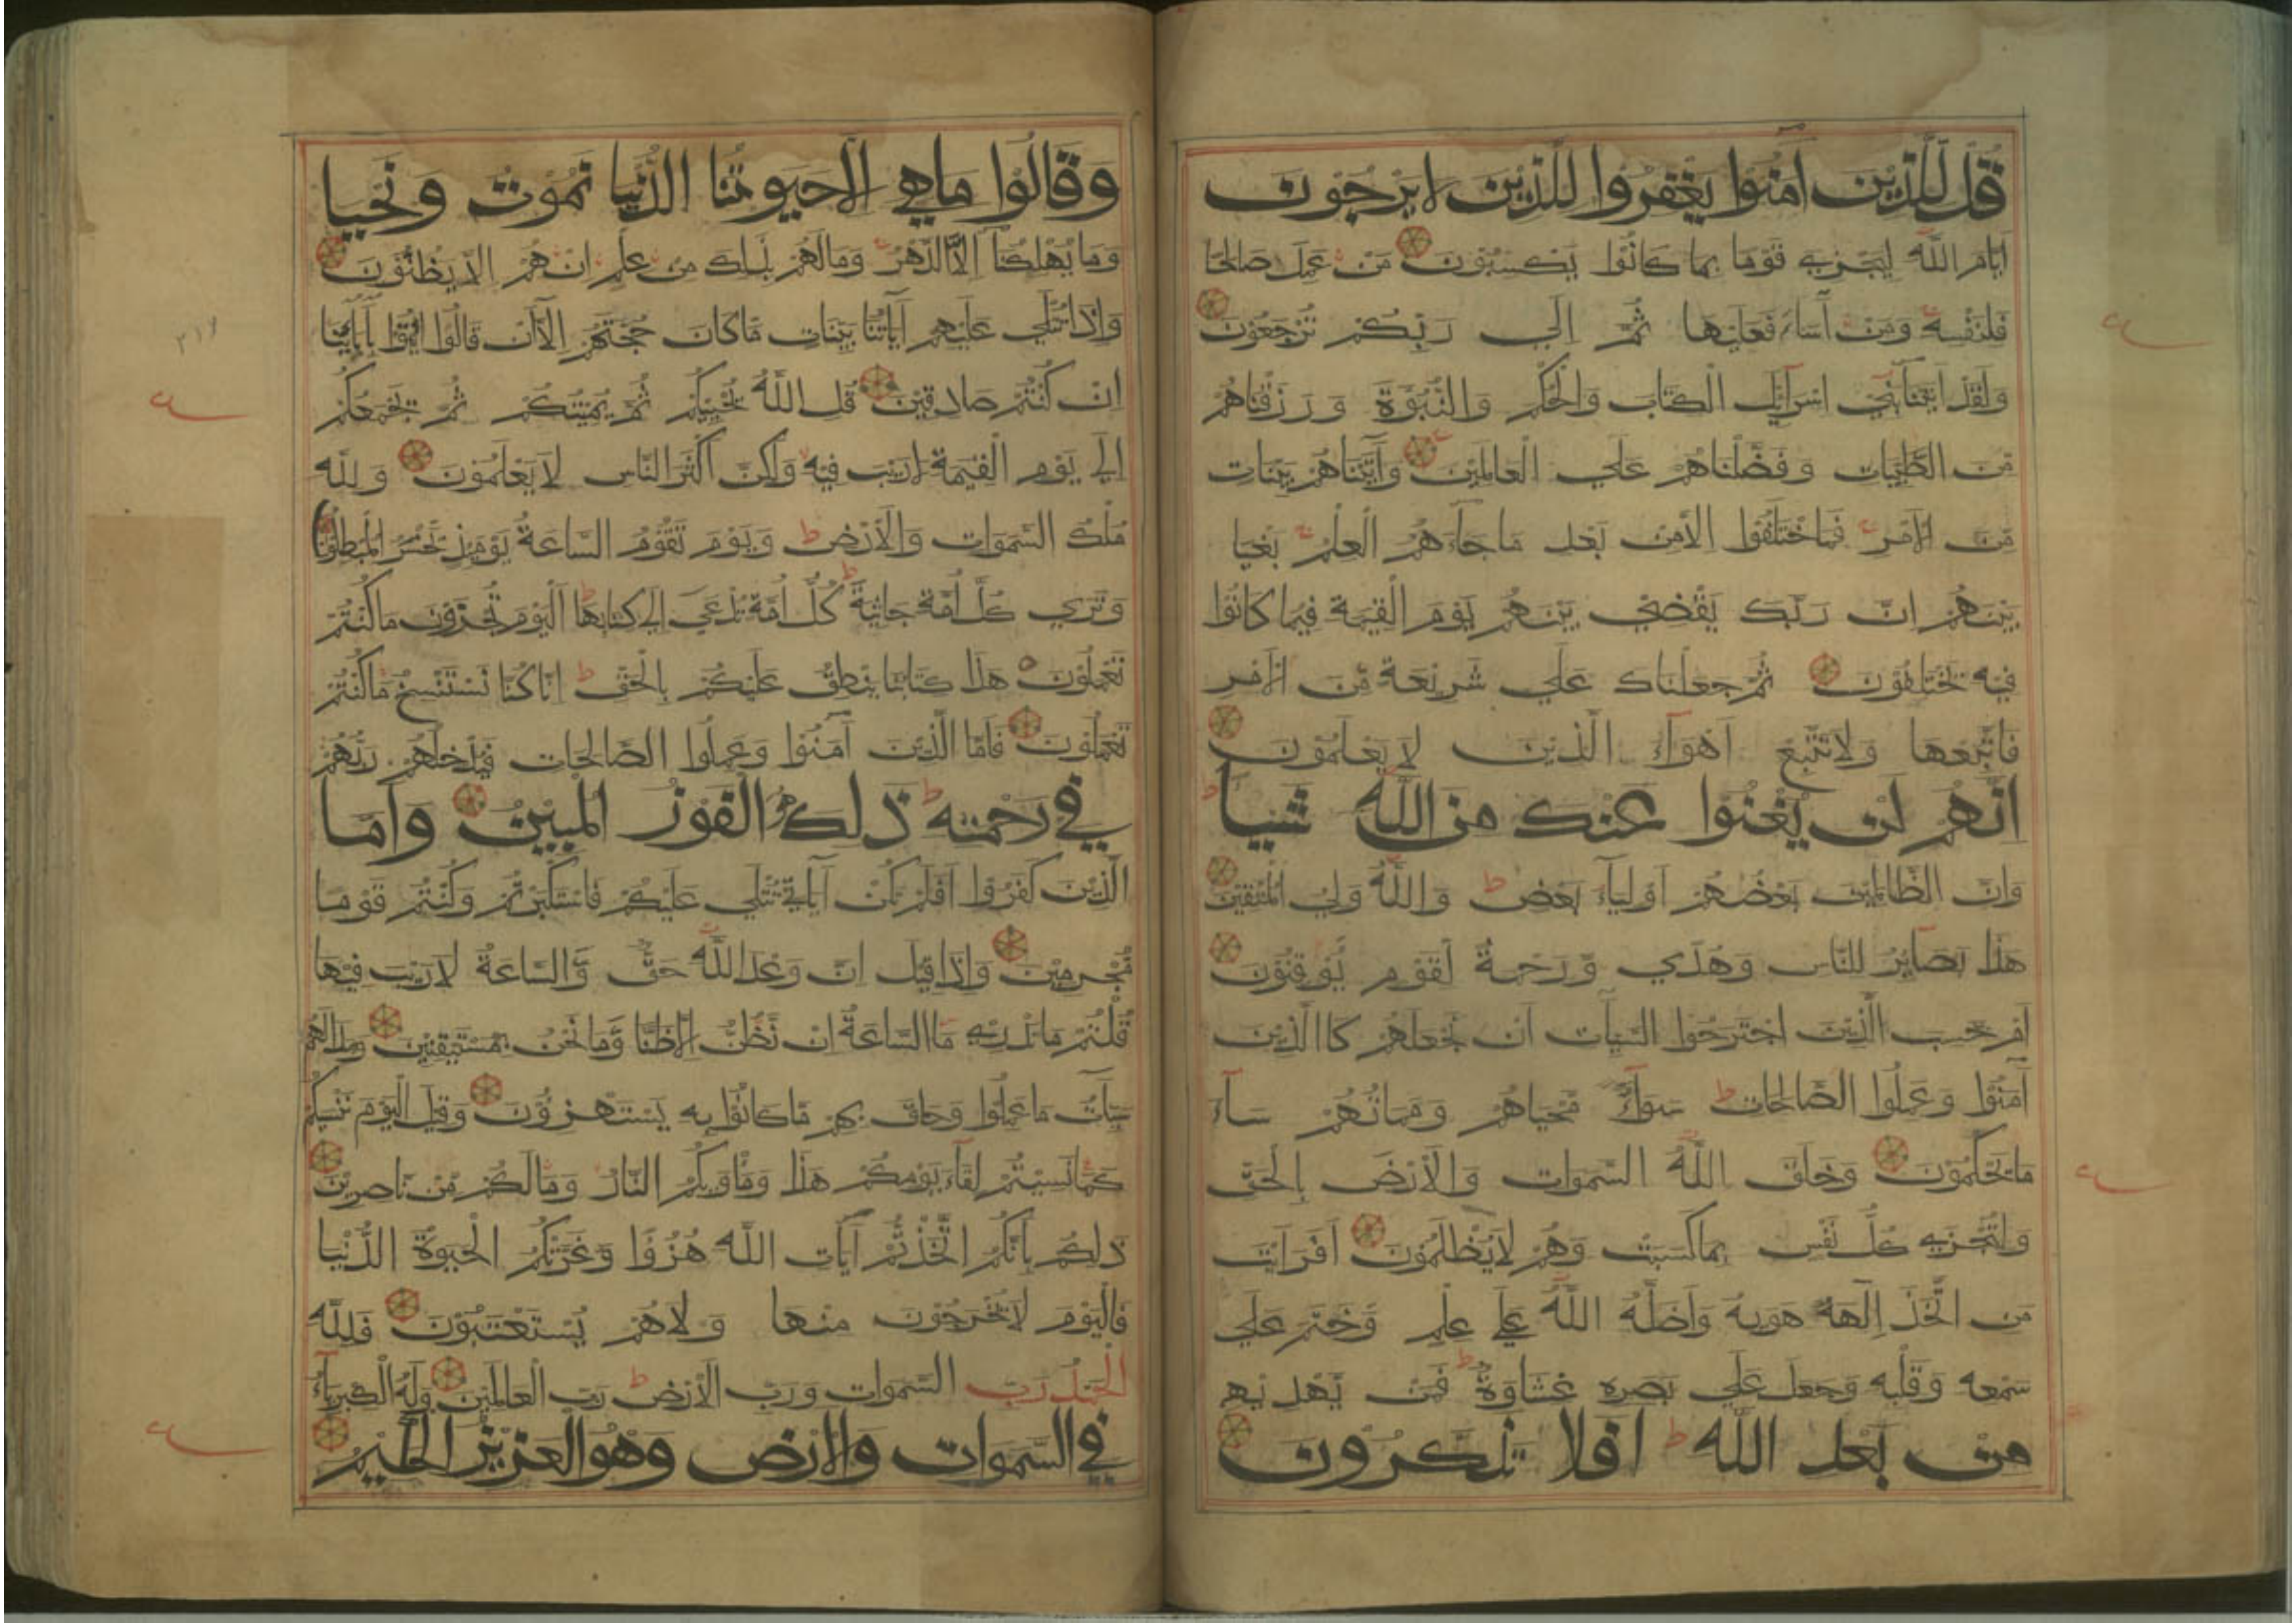 قُلْ لِلَّذِيْنَ اٰمَنُوْا يَغْفِرُوا لِلَّذِيْنَ لا يَرْجُوْنَ
اَيَّامَ اللّٰهِ لِيَجْزِيَ قَوْمًا بِمَا كَانُوْا يَكْسِبُوْنَ مَنْ عَمِلَ صَالِحًا
فَلِنَفْسِهِ وَمَنْ اَسَاءَ فَعَلَيْهَا ثُمَّ اِلَي رَبِّكُمْ تُرْجَعُوْنَ
وَلَقَدْ اٰتَيْنَا بَنِيْ اسْرَآئِيْلَ الْكِتَابَ وَالْحُكْمَ وَالنُّبُوَّةَ وَرَزَقْنَاهُمْ
مِنَ الطَّيِّبَاتِ وَفَضَّلْنَاهُمْ عَلَي الْعَالَمِيْنَ وَآتَيْنَاهُمْ بَيِّنَاتٍ
مِّنَ الْاَمْرِ فَمَا اخْتَلَفُوْا اِلَّا مِنْ بَعْدِ مَا جَآءَهُمُ الْعِلْمُ بَغْيًا
بَيْنَهُمْ اِنَّ رَبَّكَ يَقْضِي بَيْنَهُمْ يَوْمَ الْقِيٰمَةِ فِيْمَا كَانُوْا
فِيْهِ يَخْتَلِفُوْنَ ثُمَّ جَعَلْنَاكَ عَلَي شَرِيْعَةٍ مِّنَ الْاَمْرِ
فَاتَّبِعْهَا وَلَا تَتَّبِعْ اَهْوَآءَ الَّذِيْنَ لَا يَعْلَمُوْنَ
اِنَّهُمْ لَنْ يُغْنُوْا عَنْكَ مِنَ اللّٰهِ شَيْأً
وَاِنَّ الظَّالِمِيْنَ بَعْضُهُمْ اَوْلِيَآءُ بَعْضٍ ط وَاللّٰهُ وَلِيُّ الْمُتَّقِيْنَ
هٰذَا بَصَآئِرُ لِلنَّاسِ وَهُدًي وَّرَحْمَةٌ لِقَوْمٍ يُّوْقِنُوْنَ
اَمْ حَسِبَ الَّذِيْنَ اجْتَرَحُوا السَّيِّاٰتِ اَنْ نَجْعَلَهُمْ كَاالَّذِيْنَ
اٰمَنُوْا وَعَمِلُوا الصَّالِحَاتِ ط سَوَآءً مَّحْيَاهُمْ وَمَمَاتُهُمْ سَآءَ
مَا يَحْكُمُوْنَ وَخَلَقَ اللّٰهُ السَّمٰوَاتِ وَالْاَرْضَ بِالْحَقِّ
وَلِتُجْزٰي كُلُّ نَفْسٍ بِمَا كَسَبَتْ وَهُمْ لَا يُظْلَمُوْنَ اَفَرَاَيْتَ
مَنِ اتَّخَذَ اِلٰهَهُ هَوٰيهُ وَاَضَلَّهُ اللّٰهُ عَلٰي عِلْمٍ وَّخَتَمَ عَلَي
سَمْعِهِ وَقَلْبِهِ وَجَعَلَ عَلَي بَصَرِهِ غِشَاوَةً ط فَمَنْ يَهْدِيْهِ
مِنْ بَعْدِ اللّٰهِ ط اَفَلَا تَذَكَّرُوْنَ
وَقَالُوْا مَا هِيَ اِلَّا حَيٰوتُنَا الدُّنْيَا نَمُوْتُ وَنَحْيَا
وَمَا يُهْلِكُنَا اِلَّا الدَّهْرُ وَمَا لَهُمْ بِذٰلِكَ مِنْ عِلْمٍ اِنْ هُمْ اِلَّا يَظُنُّوْنَ
وَاِذَا تُتْلَي عَلَيْهِمْ اٰيَاتُنَا بَيِّنَاتٍ مَّا كَانَ حُجَّتَهُمْ اِلَّا اَنْ قَالُوا ائْتُوْا بِاٰبَآئِنَا
اِنْ كُنْتُمْ صَادِقِيْنَ قُلِ اللّٰهُ يُحْيِيْكُمْ ثُمَّ يُمِيْتُكُمْ ثُمَّ يَجْمَعُكُمْ
اِلَي يَوْمِ الْقِيٰمَةِ لَا رَيْبَ فِيْهِ وَلٰكِنَّ اَكْثَرَ النَّاسِ لَا يَعْلَمُوْنَ وَلِلّٰهِ
مُلْكُ السَّمٰوَاتِ وَالْاَرْضِ ط وَيَوْمَ تَقُوْمُ السَّاعَةُ يَوْمَئِذٍ يَّخْسَرُ الْمُبْطِلُوْنَ
وَتَرٰي كُلَّ اُمَّةٍ جَاثِيَةً ط كُلُّ اُمَّةٍ تُدْعَي اِلٰي كِتَابِهَا ط اَلْيَوْمَ تُجْزَوْنَ مَا كُنْتُمْ
تَعْمَلُوْنَ هٰذَا كِتَابُنَا يَنْطِقُ عَلَيْكُمْ بِالْحَقِّ ط اِنَّا كُنَّا نَسْتَنْسِخُ مَا كُنْتُمْ
تَعْمَلُوْنَ فَاَمَّا الَّذِيْنَ اٰمَنُوْا وَعَمِلُوا الصَّالِحَاتِ فَيُدْخِلُهُمْ رَبُّهُمْ
فِي رَحْمَتِهِ ط ذٰلِكَ هُوَ الْفَوْزُ الْمُبِيْنُ وَاَمَّا
الَّذِيْنَ كَفَرُوْا اَفَلَمْ تَكُنْ اٰيَاتِي تُتْلَي عَلَيْكُمْ فَاسْتَكْبَرْتُمْ وَكُنْتُمْ قَوْمًا
مُّجْرِمِيْنَ وَاِذَا قِيْلَ اِنَّ وَعْدَ اللّٰهِ حَقٌّ وَّالسَّاعَةُ لَا رَيْبَ فِيْهَا
قُلْتُمْ مَا نَدْرِي مَا السَّاعَةُ اِنْ نَّظُنُّ اِلَّا ظَنًّا وَّمَا نَحْنُ بِمُسْتَيْقِنِيْنَ وَبَدَا لَهُمْ
سَيِّاٰتُ مَا عَمِلُوْا وَحَاقَ بِهِمْ مَّا كَانُوْا بِهِ يَسْتَهْزِؤُنَ وَقِيْلَ الْيَوْمَ نَنْسٰيكُمْ
كَمَا نَسِيْتُمْ لِقَآءَ يَوْمِكُمْ هٰذَا وَمَاْوٰيكُمُ النَّارُ وَمَا لَكُمْ مِّنْ نَّاصِرِيْنَ
ذٰلِكُمْ بِاَنَّكُمُ اتَّخَذْتُمْ اٰيَاتِ اللّٰهِ هُزُوًا وَّغَرَّتْكُمُ الْحَيٰوةُ الدُّنْيَا
فَالْيَوْمَ لَا يُخْرَجُوْنَ مِنْهَا وَلَا هُمْ يُسْتَعْتَبُوْنَ فَلِلّٰهِ
الْحَمْدُ رَبِّ السَّمٰوَاتِ وَرَبِّ الْاَرْضِ ط رَبِّ الْعَالَمِيْنَ وَلَهُ الْكِبْرِيَآءُ
فِي السَّمٰوَاتِ وَالْاَرْضِ وَهُوَ الْعَزِيْزُ الْحَكِيْمُ